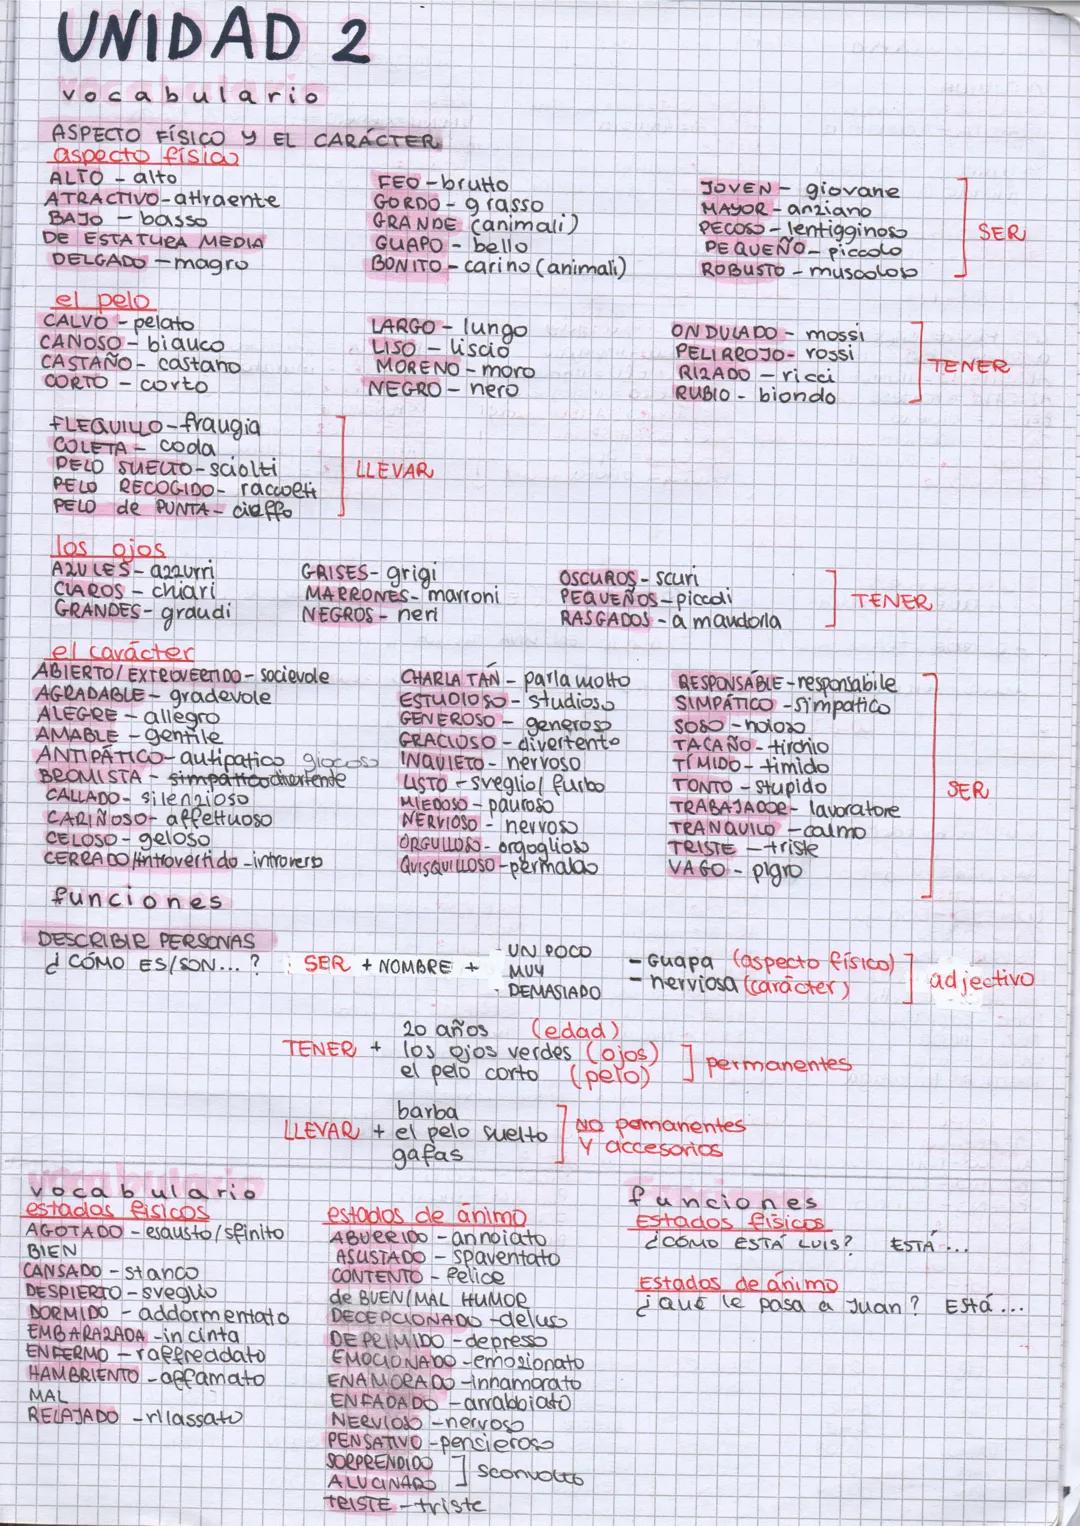 UNIDAD 2
vocabulario
ASPECTO FÍSICO Y EL CARÁCTER
aspecto físico
ALTO - alto
ATRACTIVO - attraente
BAJO - basso
DE ESTATURA MEDIA
DELGADO - magro
FEO - brutto
GORDO - grasso
GRANDE (animali)
GUAPO - bello
BONITO - carino (animali)
JOVEN - giovane
MAYOR - anziano
PECOSO - lentigginoso
PEQUEÑO - piccolo
ROBUSTO - muscoloso
SER
el pelo
CALVO - pelato
CANOSO - bianco
CASTAÑO - castano
CORTO - corto
LARGO - lungo
LISO - liscio
MORENO - moro
NEGRO - nero
ONDULADO - mossi
PELIRROJO - rossi
RIZADO - ricci
RUBIO - biondo
TENER
FLEQUILLO - frangia
COLETA - coda
PELO SUELTO - sciolti
PELO RECOGIDO - raccolti
PELO de PUNTA - ciuffo
LLEVAR
los ojos
AZULES - azzurri
CLAROS - chiari
GRANDES - grandi
GRISES - grigi
MARRONES - marroni
NEGROS - neri
OSCUROS - scuri
PEQUEÑOS - piccoli
RASGADOS - a mandorla
TENER
el carácter
ABIERTO/EXTROVERTIDO - socievole
AGRADABLE - gradevole
ALEGRE - allegro
AMABLE - gentile
ANTIPÁTICO - antipatico
BROMISTA - simpatico divertente giocoso
CALLADO - silenzioso
CARIÑOSO - affettuoso
CELOSO - geloso
CERRADO/introvertido - introverso
CHARLATÁN - parla molto
ESTUDIOSO - studioso
GENEROSO - generoso
GRACIOSO - divertente
INQUIETO - nervoso
LISTO - sveglio/furbo
MIEDOSO - pauroso
NERVIOSO - nervoso
ORGULLOSO - orgoglioso
QUISQUILLOSO - permaloso
RESPONSABLE - responsabile
SIMPÁTICO - simpatico
SOSO - noioso
TACAÑO - tirchio
TÍMIDO - timido
TONTO - stupido
TRABAJADOR - lavoratore
TRANQUILO - calmo
TRISTE - triste
VAGO - pigro
SER
funciones
DESCRIBIR PERSONAS
¿CÓMO ES/SON...?
SER + NOMBRE +
- UN POCO
MUY
- DEMASIADO
- Guapa (aspecto físico)
- nerviosa (carácter)
adjectivo
TENER +
20 años (edad)
los ojos verdes (ojos)
el pelo corto (pelo)
permanentes
LLEVAR +
barba
el pelo suelto
gafas
NO pemanentes
Y accesorios
vocabulario
estados físicos
AGOTADO - esausto/sfinito
BIEN
CANSADO - stanco
DESPIERTO - sveglio
DORMIDO - addormentato
EMBARAZADA - incinta
ENFERMO - raffreddato
HAMBRIENTO - affamato
MAL
RELAJADO - rilassato
estados de ánimo
ABURRIDO - annoiato
ASUSTADO - spaventato
CONTENTO - felice
de BUEN/MAL HUMOR
DECEPCIONADO - deluso
DEPRIMIDO - depresso
EMOCIONADO - emozionato
ENAMORADO - innamorato
ENFADADO - arrabbiato
NERVIOSO - nervoso
PENSATIVO - pensieroso
SORPRENDIDO
ALUCINADO
sconvolto
TRISTE - triste
funciones
Estados físicos
¿CÓMO ESTÁ LUIS? ESTÁ...
Estados de ánimo
¿qué le pasa a Juan? Está...